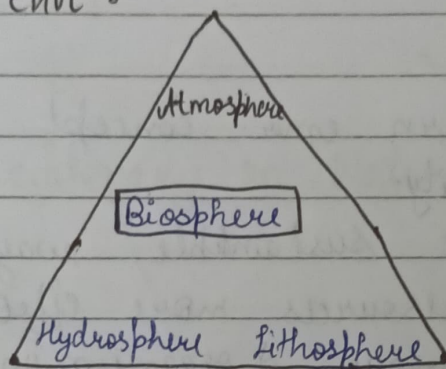 Atmosphere
Biosphere
Hydrosphere Lithosphere